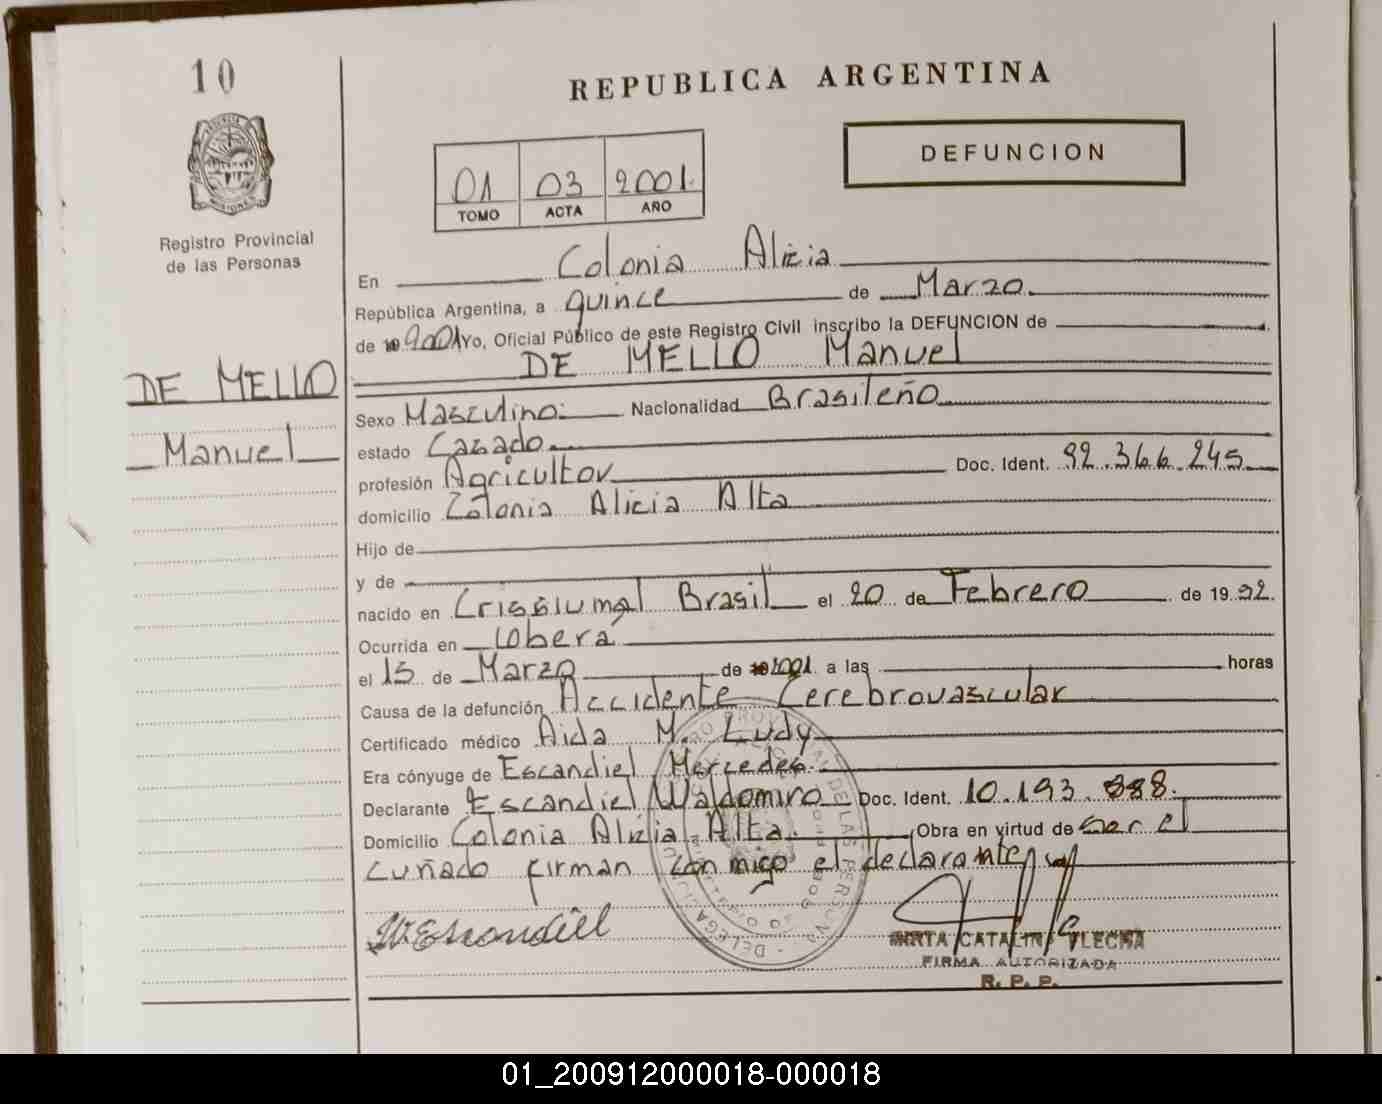 10
REPUBLICA ARGENTINA
DEFUNCION
01 03 2001.
TOMO ACTA AÑO
Registro Provincial
de las Personas
En Colonia Alicia
República Argentina, a quince de Marzo
de 2001 Yo, Oficial Público de este Registro Civil inscribo la DEFUNCION de
DE MELLO Manuel
DE MELLO
Manuel
Sexo Masculino. Nacionalidad Brasileño
estado Casado
profesión Agricultor Doc. Ident. 92.366.245
domicilio Colonia Alicia Alta
Hijo de
y de
nacido en Crissiumal Brasil el 20 de Febrero de 19
Ocurrida en Oberá
el 15 de Marzo de 2001. a las horas
Causa de la defunción Accidente Cerebrovascular
Certificado médico Aida M. Ludy
Era cónyuge de Escandiel Mercedes.
Declarante Escandiel Waldomiro Doc. Ident. 10.193.888.
Domicilio Colonia Alicia Alta. Obra en virtud de ser el
cuñado firman conmigo el declarante
W Escandiel
MIRTA CATALINA FLECHA
FIRMA AUTORIZADA
R. P. P.
01_200912000018-000018